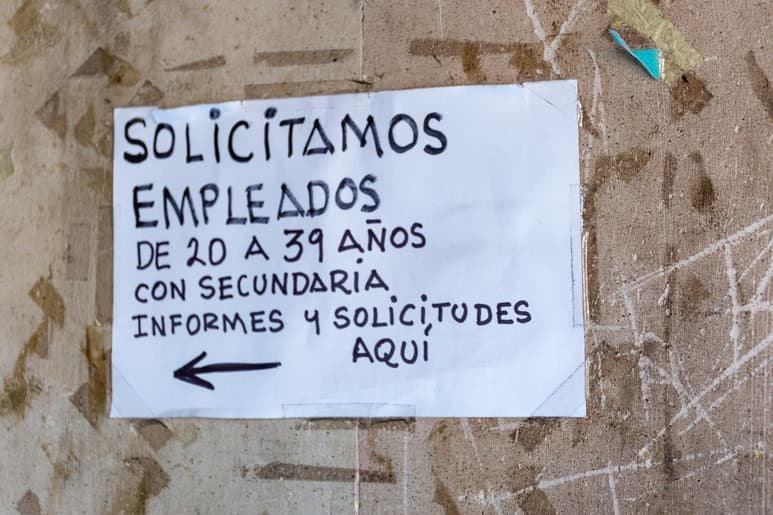 SOLICITAMOS
EMPLEADOS
DE 20 A 39 AÑOS
CON SECUNDARIA
INFORMES Y SOLICITUDES
AQUÍ